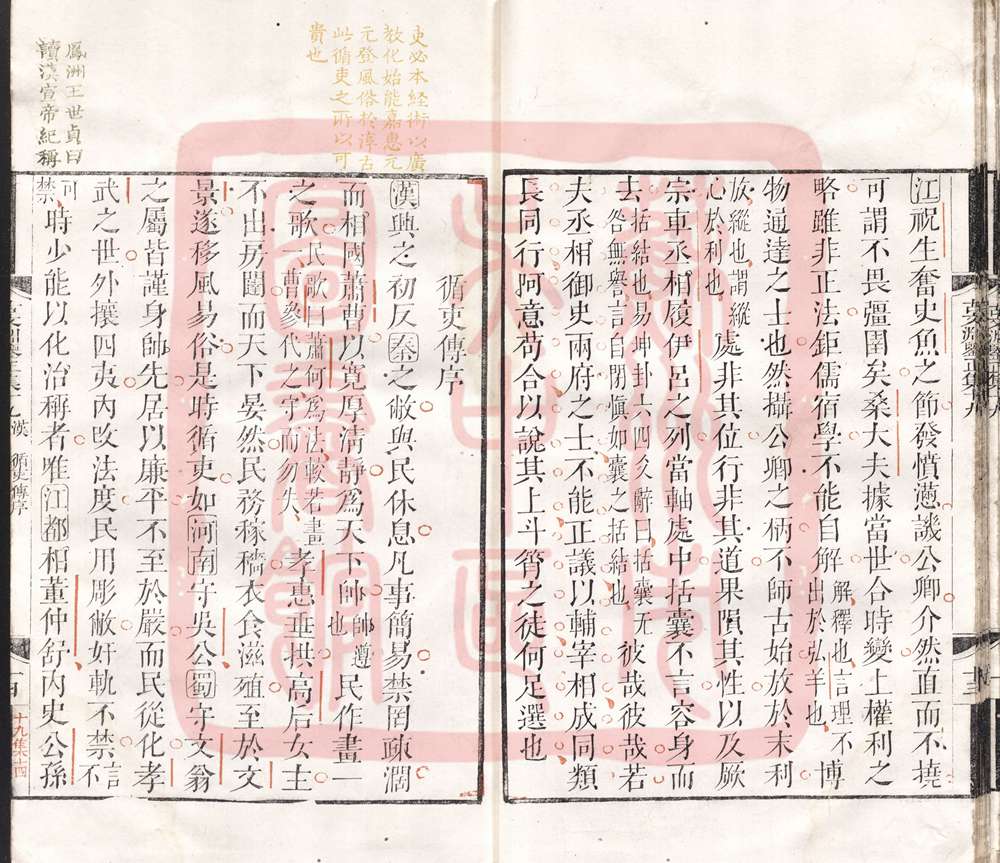 江祝生奮史魚之節發憤懣譏公卿介然直而不撓
可謂不畏彊圉矣桑大夫據當世合時變上權利之
略雖非正法鉅儒宿學不能自解解釋也言理不出於弘羊也博
物通達之士也然攝公卿之柄不師古始放於末利
放縱也謂縱心於利也處非其位行非其道果隕其性以及厥
宗車丞相履伊呂之列當軸處中括囊不言容身而
去括結也易坤卦六四爻辭曰括囊无咎無譽言自閉愼如囊之括結也彼哉彼哉若
夫丞相御史兩府之士不能正議以輔宰相成同類
長同行阿意苟合以說其上斗筲之徒何足選也
吏必本經術以廣
敎化始能嘉惠元
元登風俗於淳古
此循吏之所以可
貴也
循吏傳序
漢興之初反秦之敝與民休息凡事簡易禁罔疎濶
而相國蕭曹以寬厚淸靜爲天下帥帥遵也民作畫一
之歌民歌曰蕭何爲法較若畫一曹參代之守而勿失孝惠垂拱高后女主
不出房闥而天下晏然民務稼穡衣食滋殖至於文
景遂移風易俗是時循吏如河南守吳公蜀守文翁
之屬皆謹身帥先居以廉平不至於嚴而民從化孝
武之世外攘四夷內攺法度民用彫敝奸軌不禁言不
可禁時少能以化治稱者唯江都相董仲舒內史公孫
鳳洲王世貞曰
讀漢宣帝紀稱
漢 循吏傳序
十九集十四